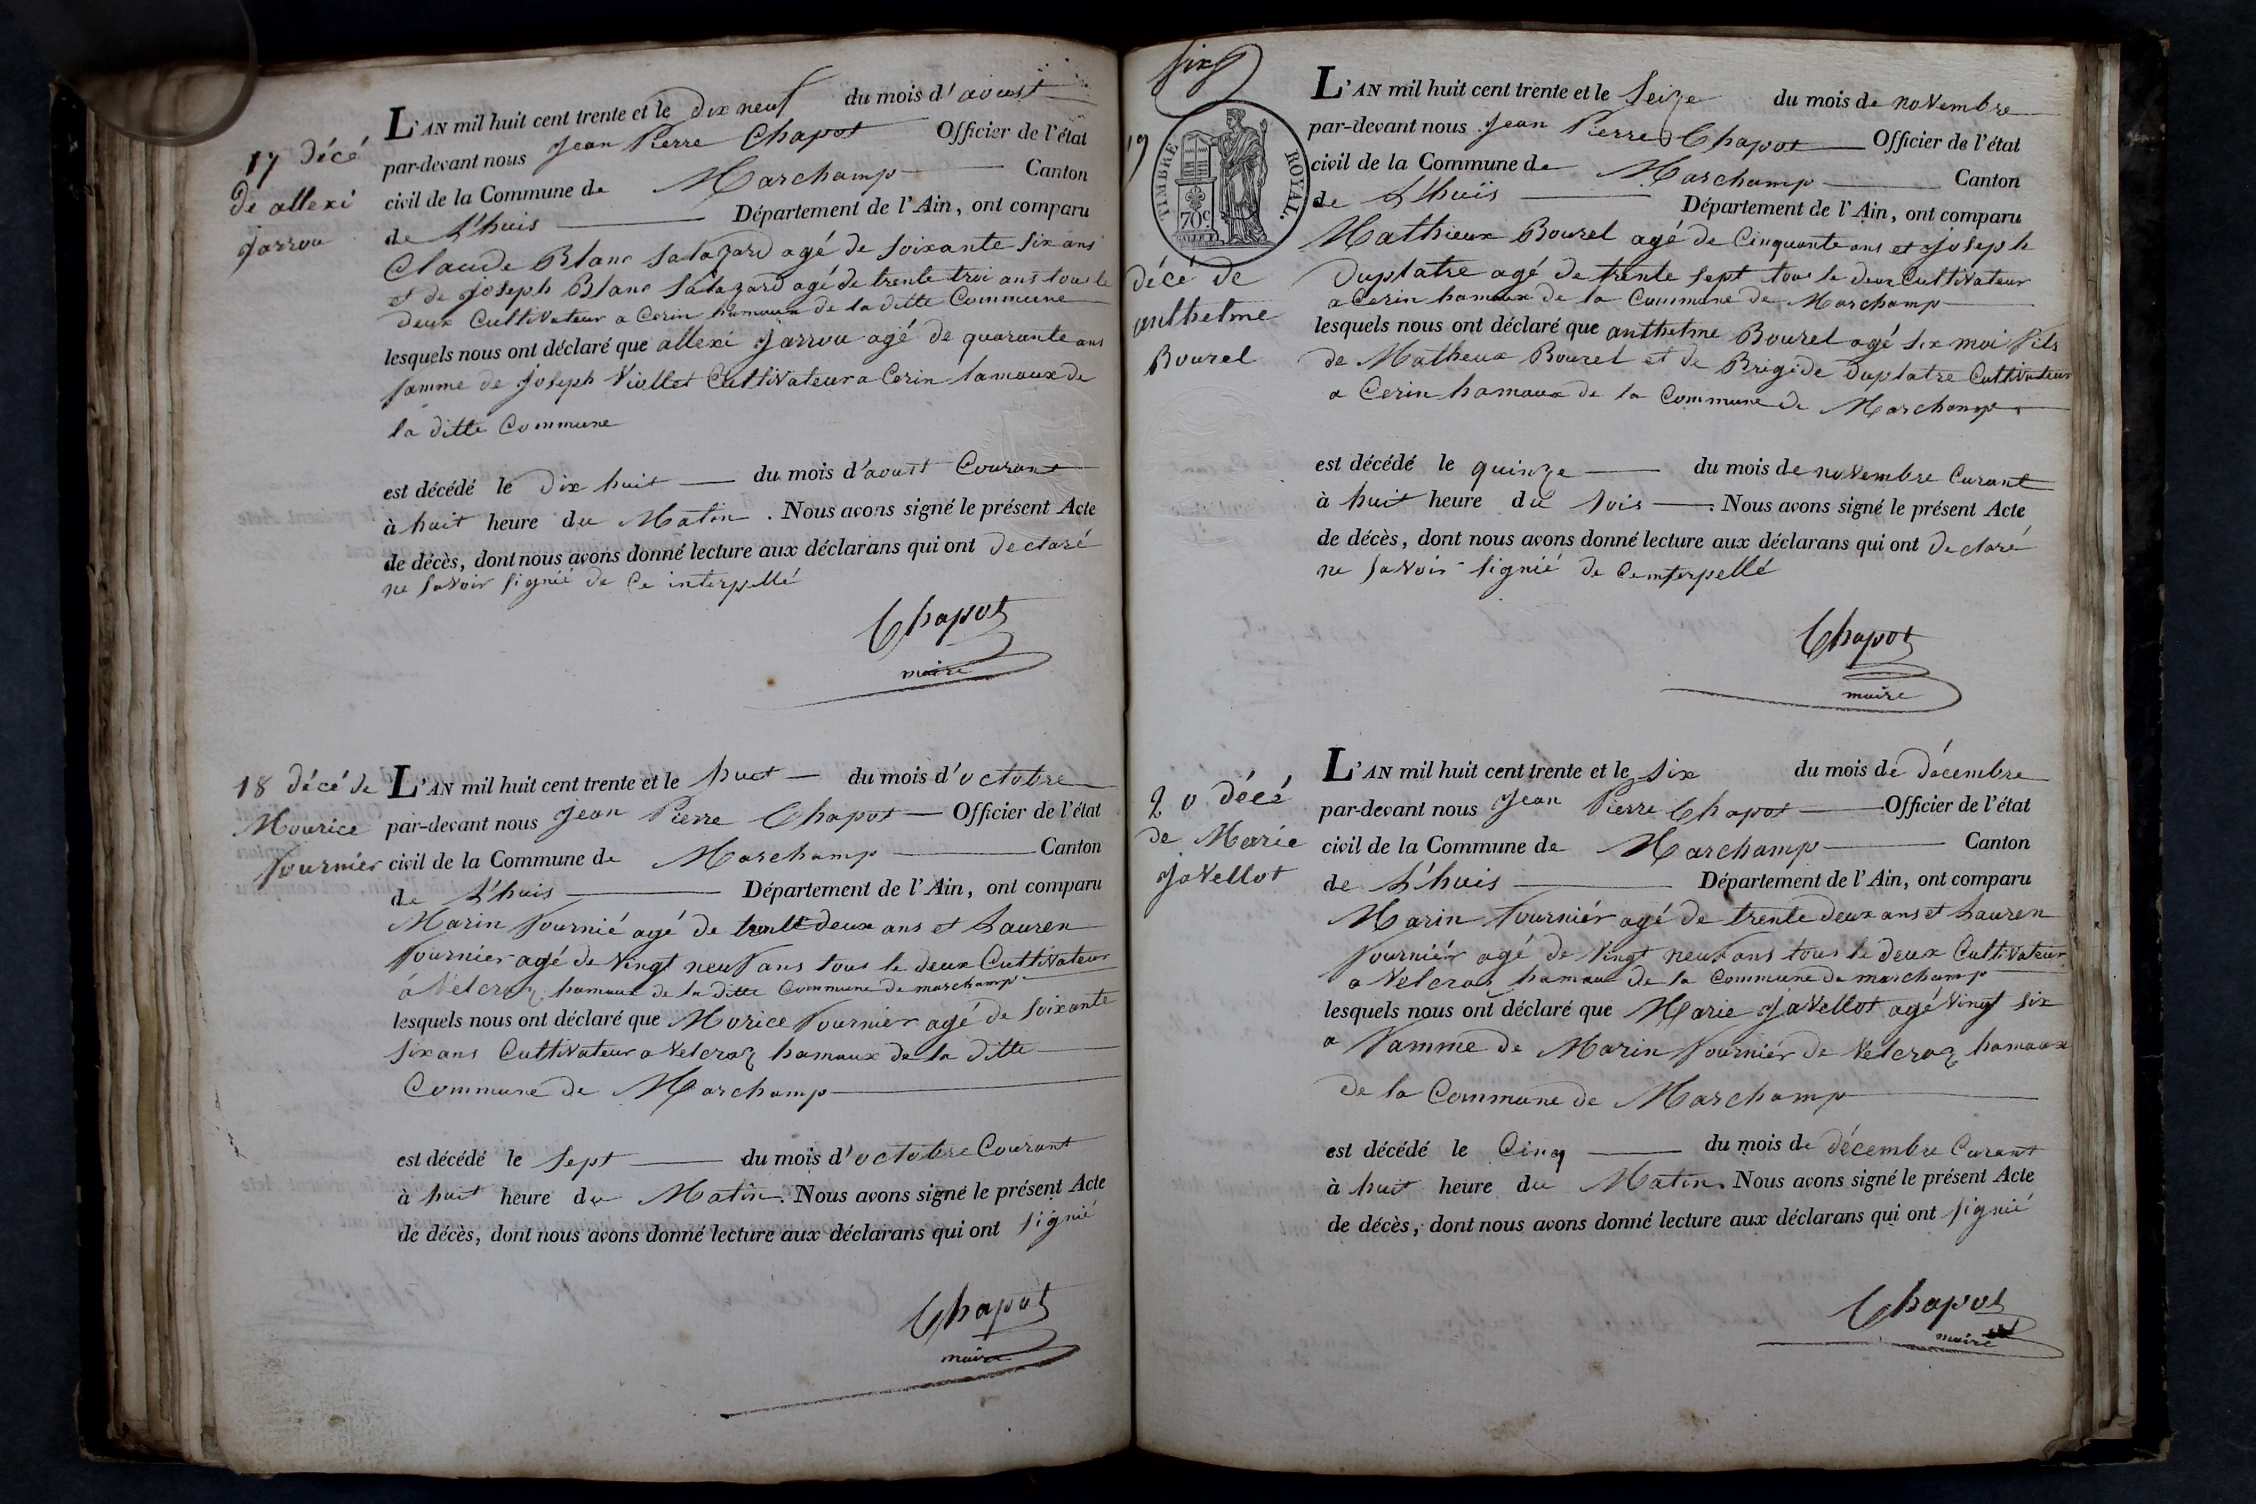 17 décé
de allexi
jarrou
L'AN mil huit cent trente et le dix neuf du mois d'aoust
par-devant nous Jean Pierre Chapot Officier de l'état
civil de la Commune de Marchamp Canton
de L'huis Département de l'Ain, ont comparu
Claude Blanc Salazard agé de soixante six ans
et de joseph Blanc Salazard agé de trente troi ans tous le
deux Cultivateur a Cerin hamaux de la ditte Commune
lesquels nous ont déclaré que allexi jarrou agé de quarante ans
famme de joseph Viollet Cultivateur a Cerin hamaux de
la ditte Commune
est décédé le dix huit du mois d'aoust Courant
à huit heure du Matin. Nous avons signé le présent Acte
de décès, dont nous avons donné lecture aux déclarans qui ont declaré
ne savoir signié de Ce interpellé
Chapot
maire
18 décé de
Mourice
fournier
L'AN mil huit cent trente et le huit du mois d'octobre
par-devant nous Jean Pierre Chapot Officier de l'état
civil de la Commune de Marchamp Canton
de L'huis Département de l'Ain, ont comparu
Marin fournié agé de trente deux ans et Lauren
fournier agé de vingt neuf ans tous le deux Cultivateur
à Velcroz hamaux de la ditte Commune de marchamp
lesquels nous ont déclaré que Morice fournier agé de soixante
six ans Cultivateur a velcroz hamaux de la ditte
Commune de Marchamp
est décédé le sept du mois d'octobre Courant
à huit heure du Matin. Nous avons signé le présent Acte
de décès, dont nous avons donné lecture aux déclarans qui ont signié
Chapot
maire
six
TIMBRE ROYAL.
70c
19
décé de
anthelme
Bourel
L'AN mil huit cent trente et le seize du mois de novembre
par-devant nous Jean Pierre Chapot Officier de l'état
civil de la Commune de Marchamp Canton
de L'huis Département de l'Ain, ont comparu
Mathieux Bourel agé de Cinquante ans et joseph
Duplatre agé de trente sept tous le deux Cultivateur
a Cerin hamaux de la Commune de Marchamp
lesquels nous ont déclaré que anthelme Bourel agé six moi fils
de Matheux Bourel et de Brigide duplatre Cultivateur
a Cerin hamaux de la Commune de Marchamp
est décédé le quinze du mois de novembre Curant
à huit heure du soir. Nous avons signé le présent Acte
de décès, dont nous avons donné lecture aux déclarans qui ont declaré
ne savoir signié de Ce interpellé
Chapot
maire
20 décé
de Marie
javellot
L'AN mil huit cent trente et le six du mois de décembre
par-devant nous Jean Pierre Chapot Officier de l'état
civil de la Commune de Marchamp Canton
de L'huis Département de l'Ain, ont comparu
Marin fourniér agé de trente deux ans et Lauren
fourniér agé de vingt neuf ans tous le deux Cultivateur
a Velcroz hamau de la Commune de marchamp
lesquels nous ont déclaré que Marie javellot agé vingt six
a famme de Marin fourniér de velcroz hamaux
de la Commune de Marchamp
est décédé le Cinq du mois de décembre Curant
à huit heure du Matin. Nous avons signé le présent Acte
de décès, dont nous avons donné lecture aux déclarans qui ont signié
Chapot
maire